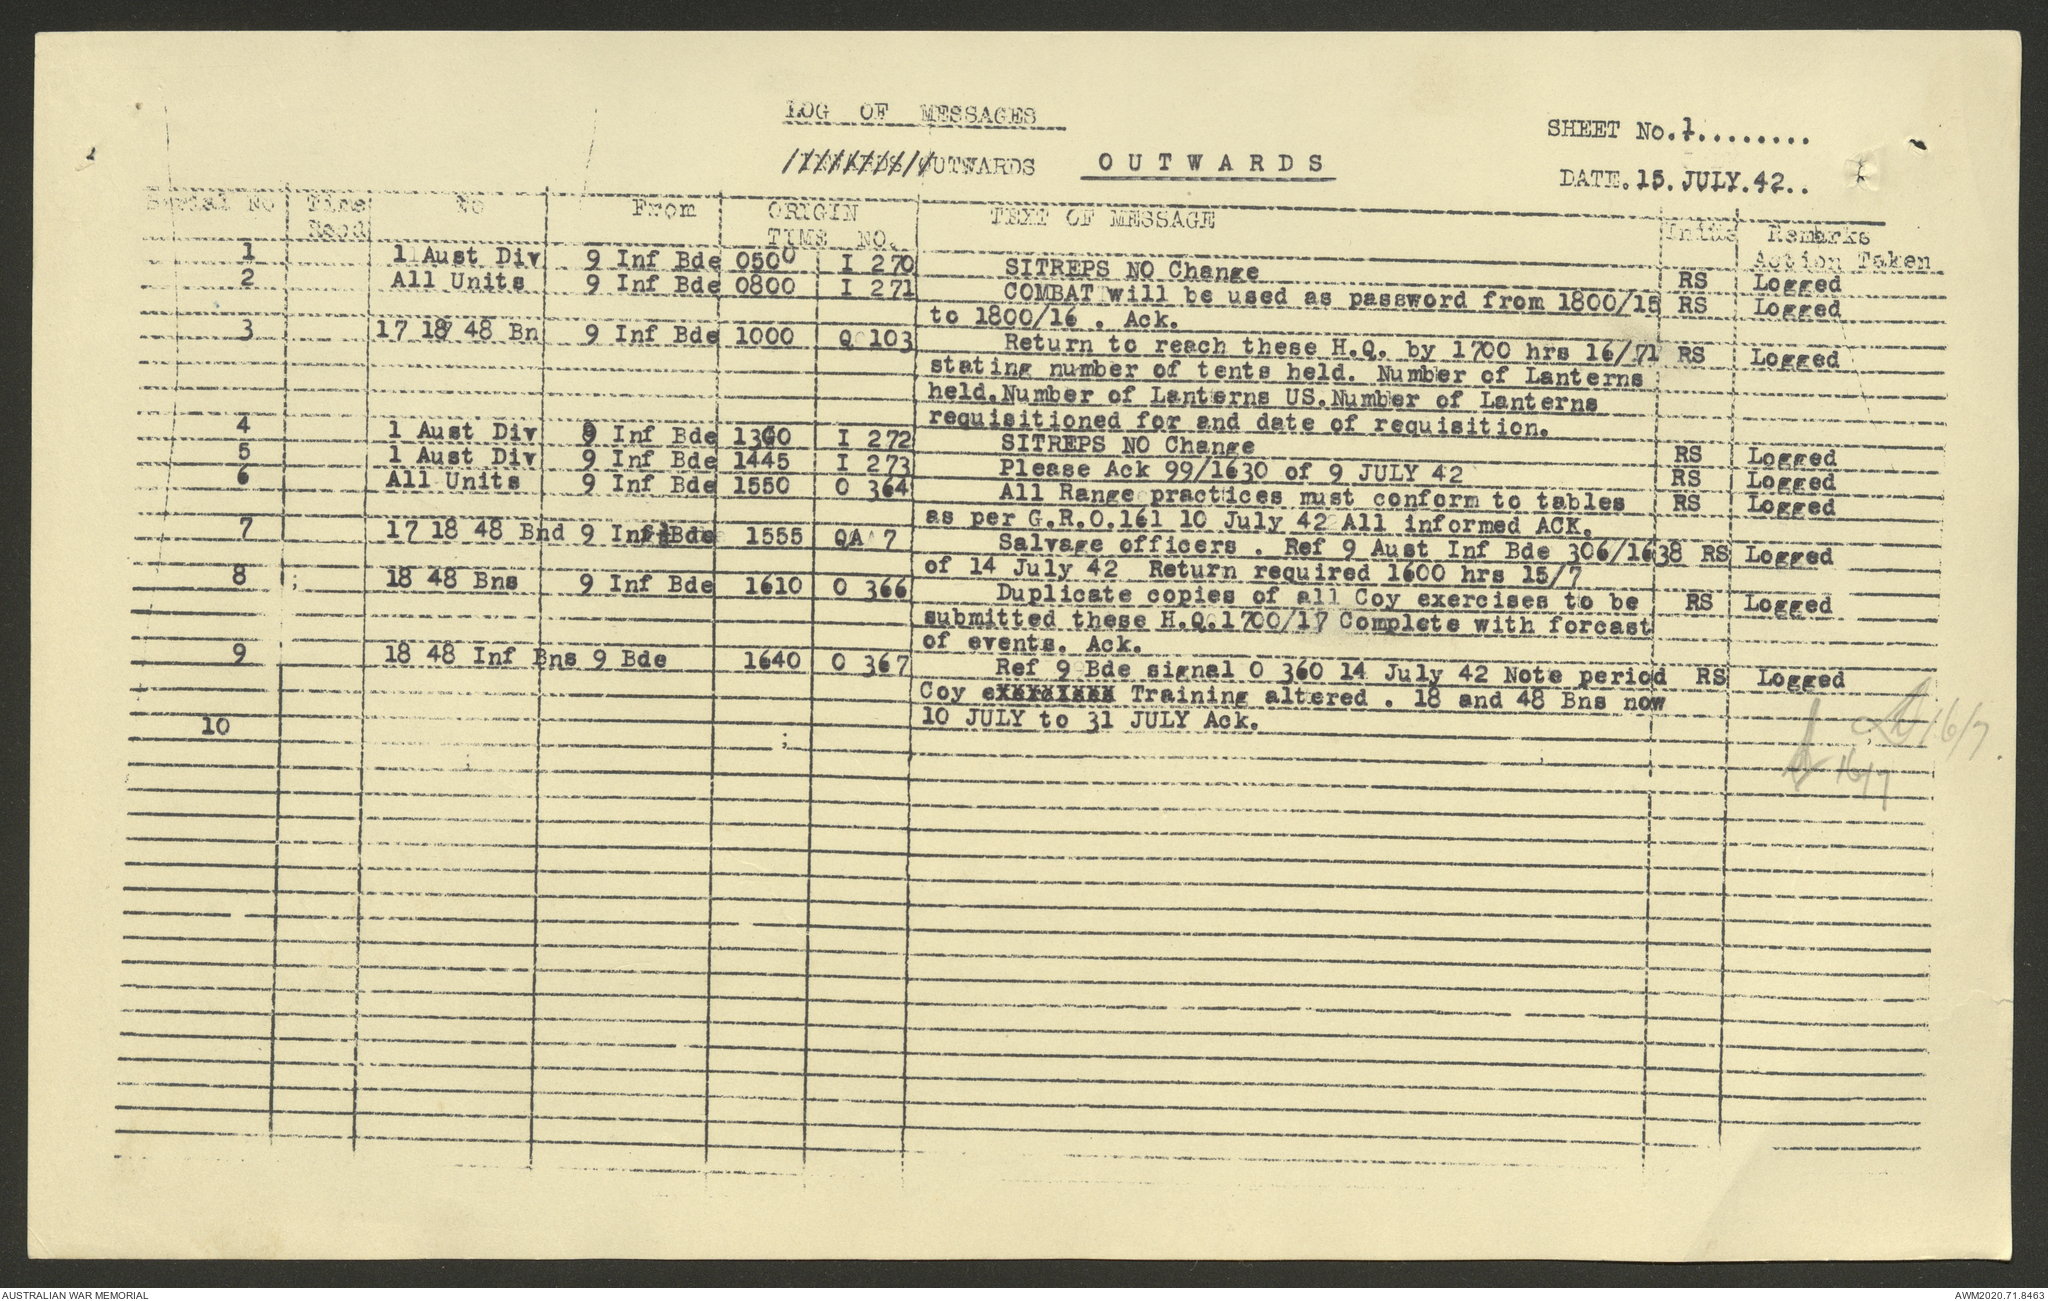 LOG OF MESSAGES
SHEET No.1........
OUTWARDS OUTWARDS
DATE.15.JULY.42..
Serial No Time To From ORIGIN TEXT OF MESSAGE Initls Remarks
Recd TIME NO. Action Taken
1 1 Aust Div 9 Inf Bde 0500 I 270 SITREPS NO Change RS Logged
2 All Units 9 Inf Bde 0800 I 271 COMBAT will be used as password from 1800/15 RS Logged
to 1800/16 . Ack.
3 17 18 48 Bn 9 Inf Bde 1000 Q 103 Return to reach these H.Q. by 1700 hrs 16/71 RS Logged
stating number of tents held. Number of Lanterns
held.Number of Lanterns US.Number of Lanterns
requisitioned for and date of requisition.
4 1 Aust Div 9 Inf Bde 1300 I 272 SITREPS NO Change RS Logged
5 1 Aust Div 9 Inf Bde 1445 I 273 Please Ack 99/1630 of 9 JULY 42 RS Logged
6 All Units 9 Inf Bde 1550 O 364 All Range practices must conform to tables RS Logged
as per G.R.O.161 10 July 42 All informed ACK.
7 17 18 48 Bnd 9 Inf Bde 1555 QA 7 Salvage officers . Ref 9 Aust Inf Bde 306/1638 RS Logged
of 14 July 42 Return required 1600 hrs 15/7
8 18 48 Bns 9 Inf Bde 1610 O 366 Duplicate copies of all Coy exercises to be RS Logged
submitted these H.Q.1700/17 Complete with forcast
of events. Ack.
9 18 48 Inf Bns 9 Bde 1640 O 367 Ref 9 Bde signal O 360 14 July 42 Note period RS Logged
Coy exercises Training altered . 18 and 48 Bns now
10 JULY to 31 JULY Ack.
10
16/7
16/7
AUSTRALIAN WAR MEMORIAL
AWM2020.71.8463